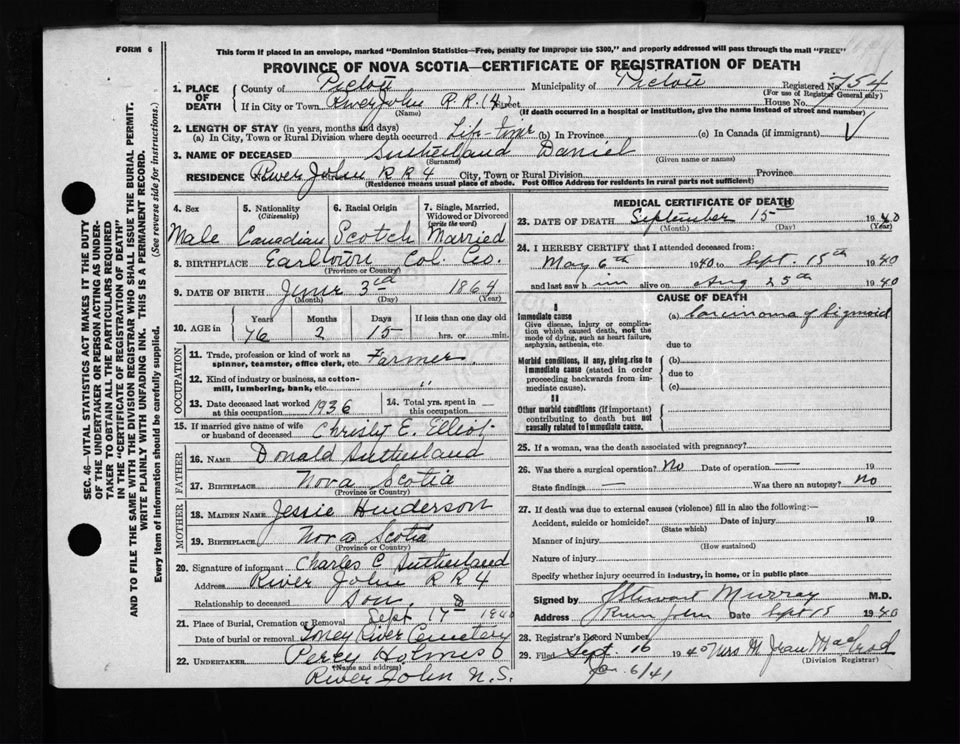 FORM 6
This form if placed in an envelope, marked "Dominion Statistics—Free, penalty for improper use $300," and properly addressed will pass through the mail "FREE"
PROVINCE OF NOVA SCOTIA—CERTIFICATE OF REGISTRATION OF DEATH
SEC. 46—VITAL STATISTICS ACT MAKES IT THE DUTY
OF THE UNDERTAKER OR PERSON ACTING AS UNDER-
TAKER TO OBTAIN ALL THE PARTICULARS REQUIRED
IN THE "CERTIFICATE OF REGISTRATION OF DEATH"
AND TO FILE THE SAME WITH THE DIVISION REGISTRAR WHO SHALL ISSUE THE BURIAL PERMIT.
WRITE PLAINLY WITH UNFADING INK. THIS IS A PERMANENT RECORD.
Every item of Information should be carefully supplied. (See reverse side for instructions.)
1. PLACE OF DEATH
County of Pictou Municipality of Pictou Registered No. 754
(For use of Registrar General only)
If in City or Town River John R.R. (4) Street House No.
(Name) (If death occurred in a hospital or institution, give the name instead of street and number)
2. LENGTH OF STAY (in years, months and days)
(a) In City, Town or Rural Division where death occurred Life-time (b) In Province (c) In Canada (if immigrant)
3. NAME OF DECEASED Sutherland Daniel
(Surname) (Given name or names)
RESIDENCE River John R R 4 City, Town or Rural Division Province
(Residence means usual place of abode. Post Office Address for residents in rural parts not sufficient)
4. Sex 5. Nationality (Citizenship) 6. Racial Origin 7. Single, Married, Widowed or Divorced (write the word)
Male Canadian Scotch Married
8. BIRTHPLACE Earltown Col. Co.
(Province or Country)
9. DATE OF BIRTH June 3rd 1864
(Month) (Day) (Year)
10. AGE in Years Months Days If less than one day old
76 2 15 hrs. or min.
OCCUPATION
11. Trade, profession or kind of work as spinner, teamster, office clerk, etc. Farmer
12. Kind of industry or business, as cotton-mill, lumbering, bank, etc. "
13. Date deceased last worked at this occupation 1936 14. Total yrs. spent in this occupation —
15. If married give name of wife or husband of deceased Christy E. Elliot
FATHER
16. NAME Donald Sutherland
17. BIRTHPLACE Nova Scotia
(Province or Country)
MOTHER
18. MAIDEN NAME Jessie Henderson
19. BIRTHPLACE Nova Scotia
(Province or Country)
20. Signature of informant Charles C Sutherland
Address River John R R 4
Relationship to deceased Son
21. Place of Burial, Cremation or Removal Sept 17 1940
Date of burial or removal Toney River Cemetery
22. UNDERTAKER Percy Holmes
(Name and address)
River John N.S.
MEDICAL CERTIFICATE OF DEATH
23. DATE OF DEATH September 15 1940
(Month) (Day) (Year)
24. I HEREBY CERTIFY that I attended deceased from:
May 6th 1940 to Sept. 15th 1940
and last saw him alive on Aug 25th 1940
CAUSE OF DEATH
I
Immediate cause (a) Carcinoma of Sigmoid
Give disease, injury or complication which caused death, not the mode of dying, such as heart failure, asphyxia, asthenia, etc.
due to
Morbid conditions, if any, giving rise to immediate cause (stated in order proceeding backwards from immediate cause). (b)
due to
(c)
II
Other morbid conditions (if important) contributing to death but not causally related to immediate cause.
25. If a woman, was the death associated with pregnancy?
26. Was there a surgical operation? No Date of operation — 19
State findings — Was there an autopsy? no
27. If death was due to external causes (violence) fill in also the following:—
Accident, suicide or homicide? Date of injury 19
(State which)
Manner of injury
(How sustained)
Nature of injury
Specify whether injury occurred in industry, in home, or in public place
Signed by Stewart Murray M.D.
Address River John Date Sept 15 1940
28. Registrar's Record Number
29. Filed Sept. 16 1940 Mrs M. Jean MacLeod
(Division Registrar)
6/41